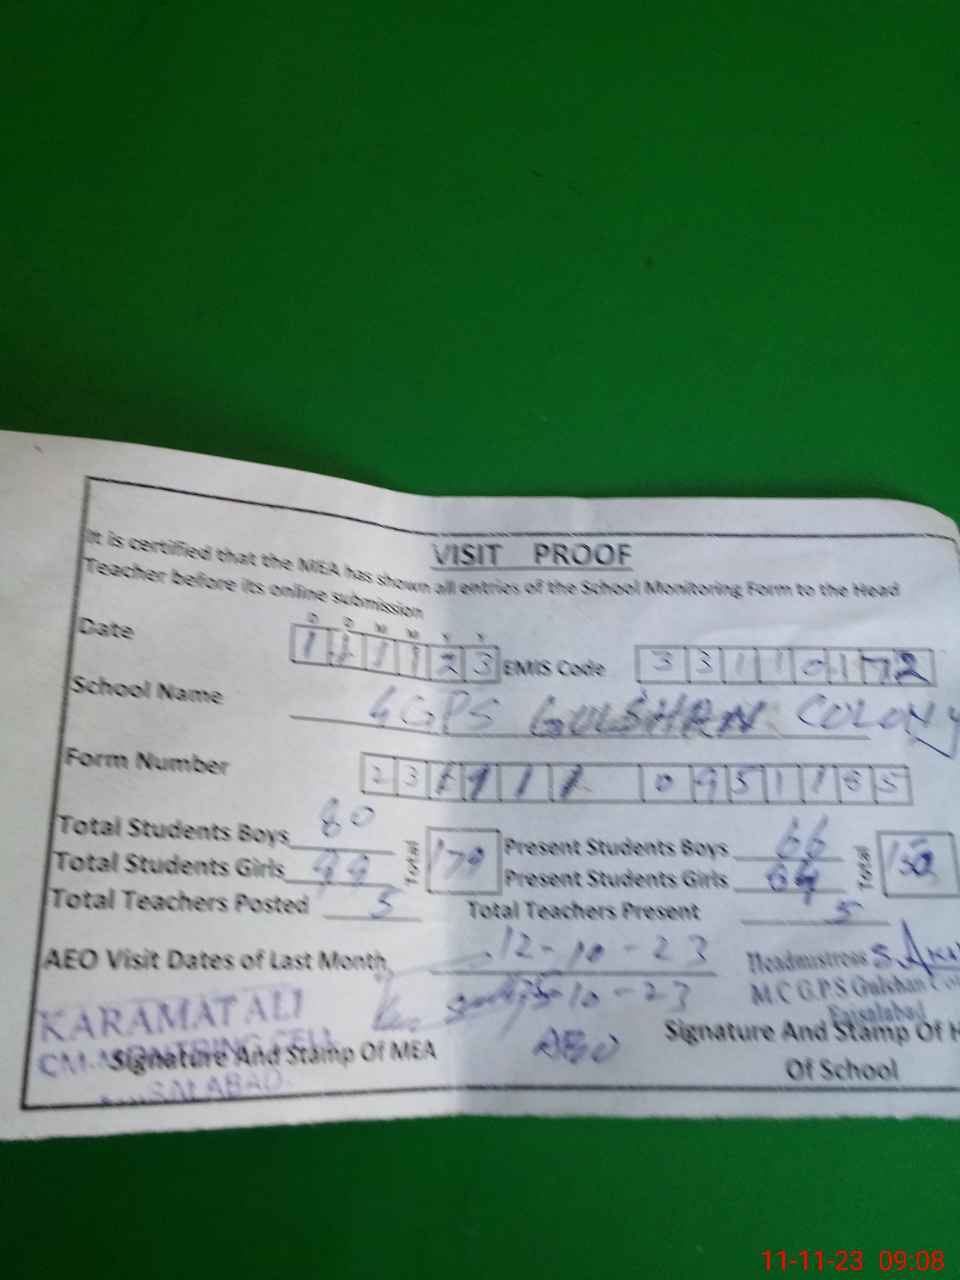 VISIT PROOF
It is certified that the MEA has shown all entries of the School Monitoring Form to the Head
Teacher before its online submission
D D M M Y Y
Date 1 1 1 1 2 3 EMIS Code 3 3 1 1 0 1 7 2
School Name GGPS GULSHAN COLONY
Form Number 2 3 1 1 1 1 0 9 5 1 1 8 5
Total Students Boys 80 Total 179 Present Students Boys 66 Total 150
Total Students Girls 99 Present Students Girls 84
Total Teachers Posted 5 Total Teachers Present 5
AEO Visit Dates of Last Month 12-10-23
-10-23
AEO
Headmistress
M C G.P.S Gulshan
Faisalabad
KARAMAT ALI
Signature And Stamp Of MEA
Signature And Stamp Of H
Of School
11-11-23 09:08